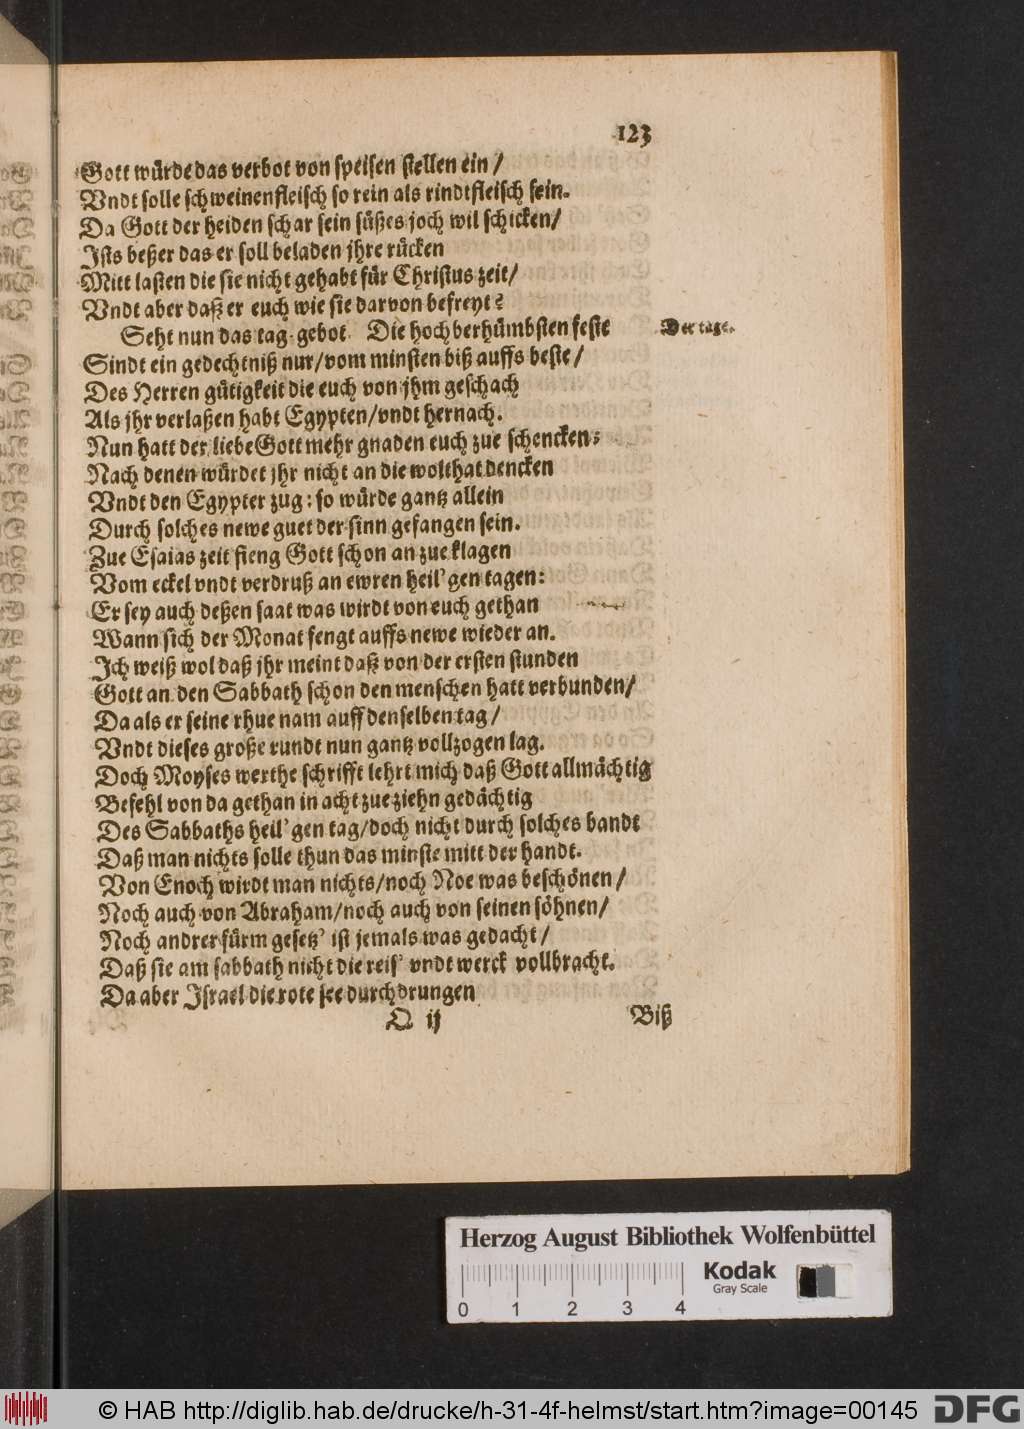 123
Gott würde das verbot von speisen stellen ein /
Vndt solle schweinenfleisch so rein als rindtfleisch sein.
Da Gott der heiden schar sein süßes joch wil schicken/
Ists beßer das er soll beladen jhre rücken
Mitt lasten die sie nicht gehabt für Christus zeit/
Vndt aber daß er euch wie sie darvon befreyt?
Seht nun das tag-gebot. Die hochberhümbsten feste
Der tage.
Sindt ein gedechtniß nur/vom minsten biß auffs beste/
Des Herren gütigkeit die euch von jhm geschach
Als jhr verlaßen habt Egypten/vndt hernach.
Nun hatt der liebe Gott mehr gnaden euch zue schencken;
Nach denen würdet jhr nicht an die wolthat dencken
Vndt den Egypter zug: so würde gantz allein
Durch solches newe guet der sinn gefangen sein.
Zue Esaias zeit fieng Gott schon an zue klagen
Vom eckel vndt verdruß an ewren heil'gen tagen:
Er sey auch deßen saat was wirdt von euch gethan
Wann sich der Monat fengt auffs newe wieder an.
Ich weiß wol daß jhr meint daß von der ersten stunden
Gott an den Sabbath schon den menschen hatt verbunden/
Da als er seine rhue nam auff denselben tag /
Vndt dieses große rundt nun gantz vollzogen lag.
Doch Moyses werthe schrifft lehrt mich daß Gott allmächtig
Befehl von da gethan in acht zue ziehn gedächtig
Des Sabbaths heil'gen tag/doch nicht durch solches bandt
Daß man nichts solle thun das minste mitt der handt.
Von Enoch wirdt man nichts/noch Noe was beschönen /
Noch auch von Abraham/noch auch von seinen söhnen/
Noch andrer fürm gesetz' ist jemals was gedacht /
Daß sie am sabbath nicht die reis' vndt werck vollbracht.
Da aber Israel die rote see durchdrungen
Q ij
Biß
Herzog August Bibliothek Wolfenbüttel
Kodak
Gray Scale
0 1 2 3 4
© HAB http://diglib.hab.de/drucke/h-31-4f-helmst/start.htm?image=00145
DFG